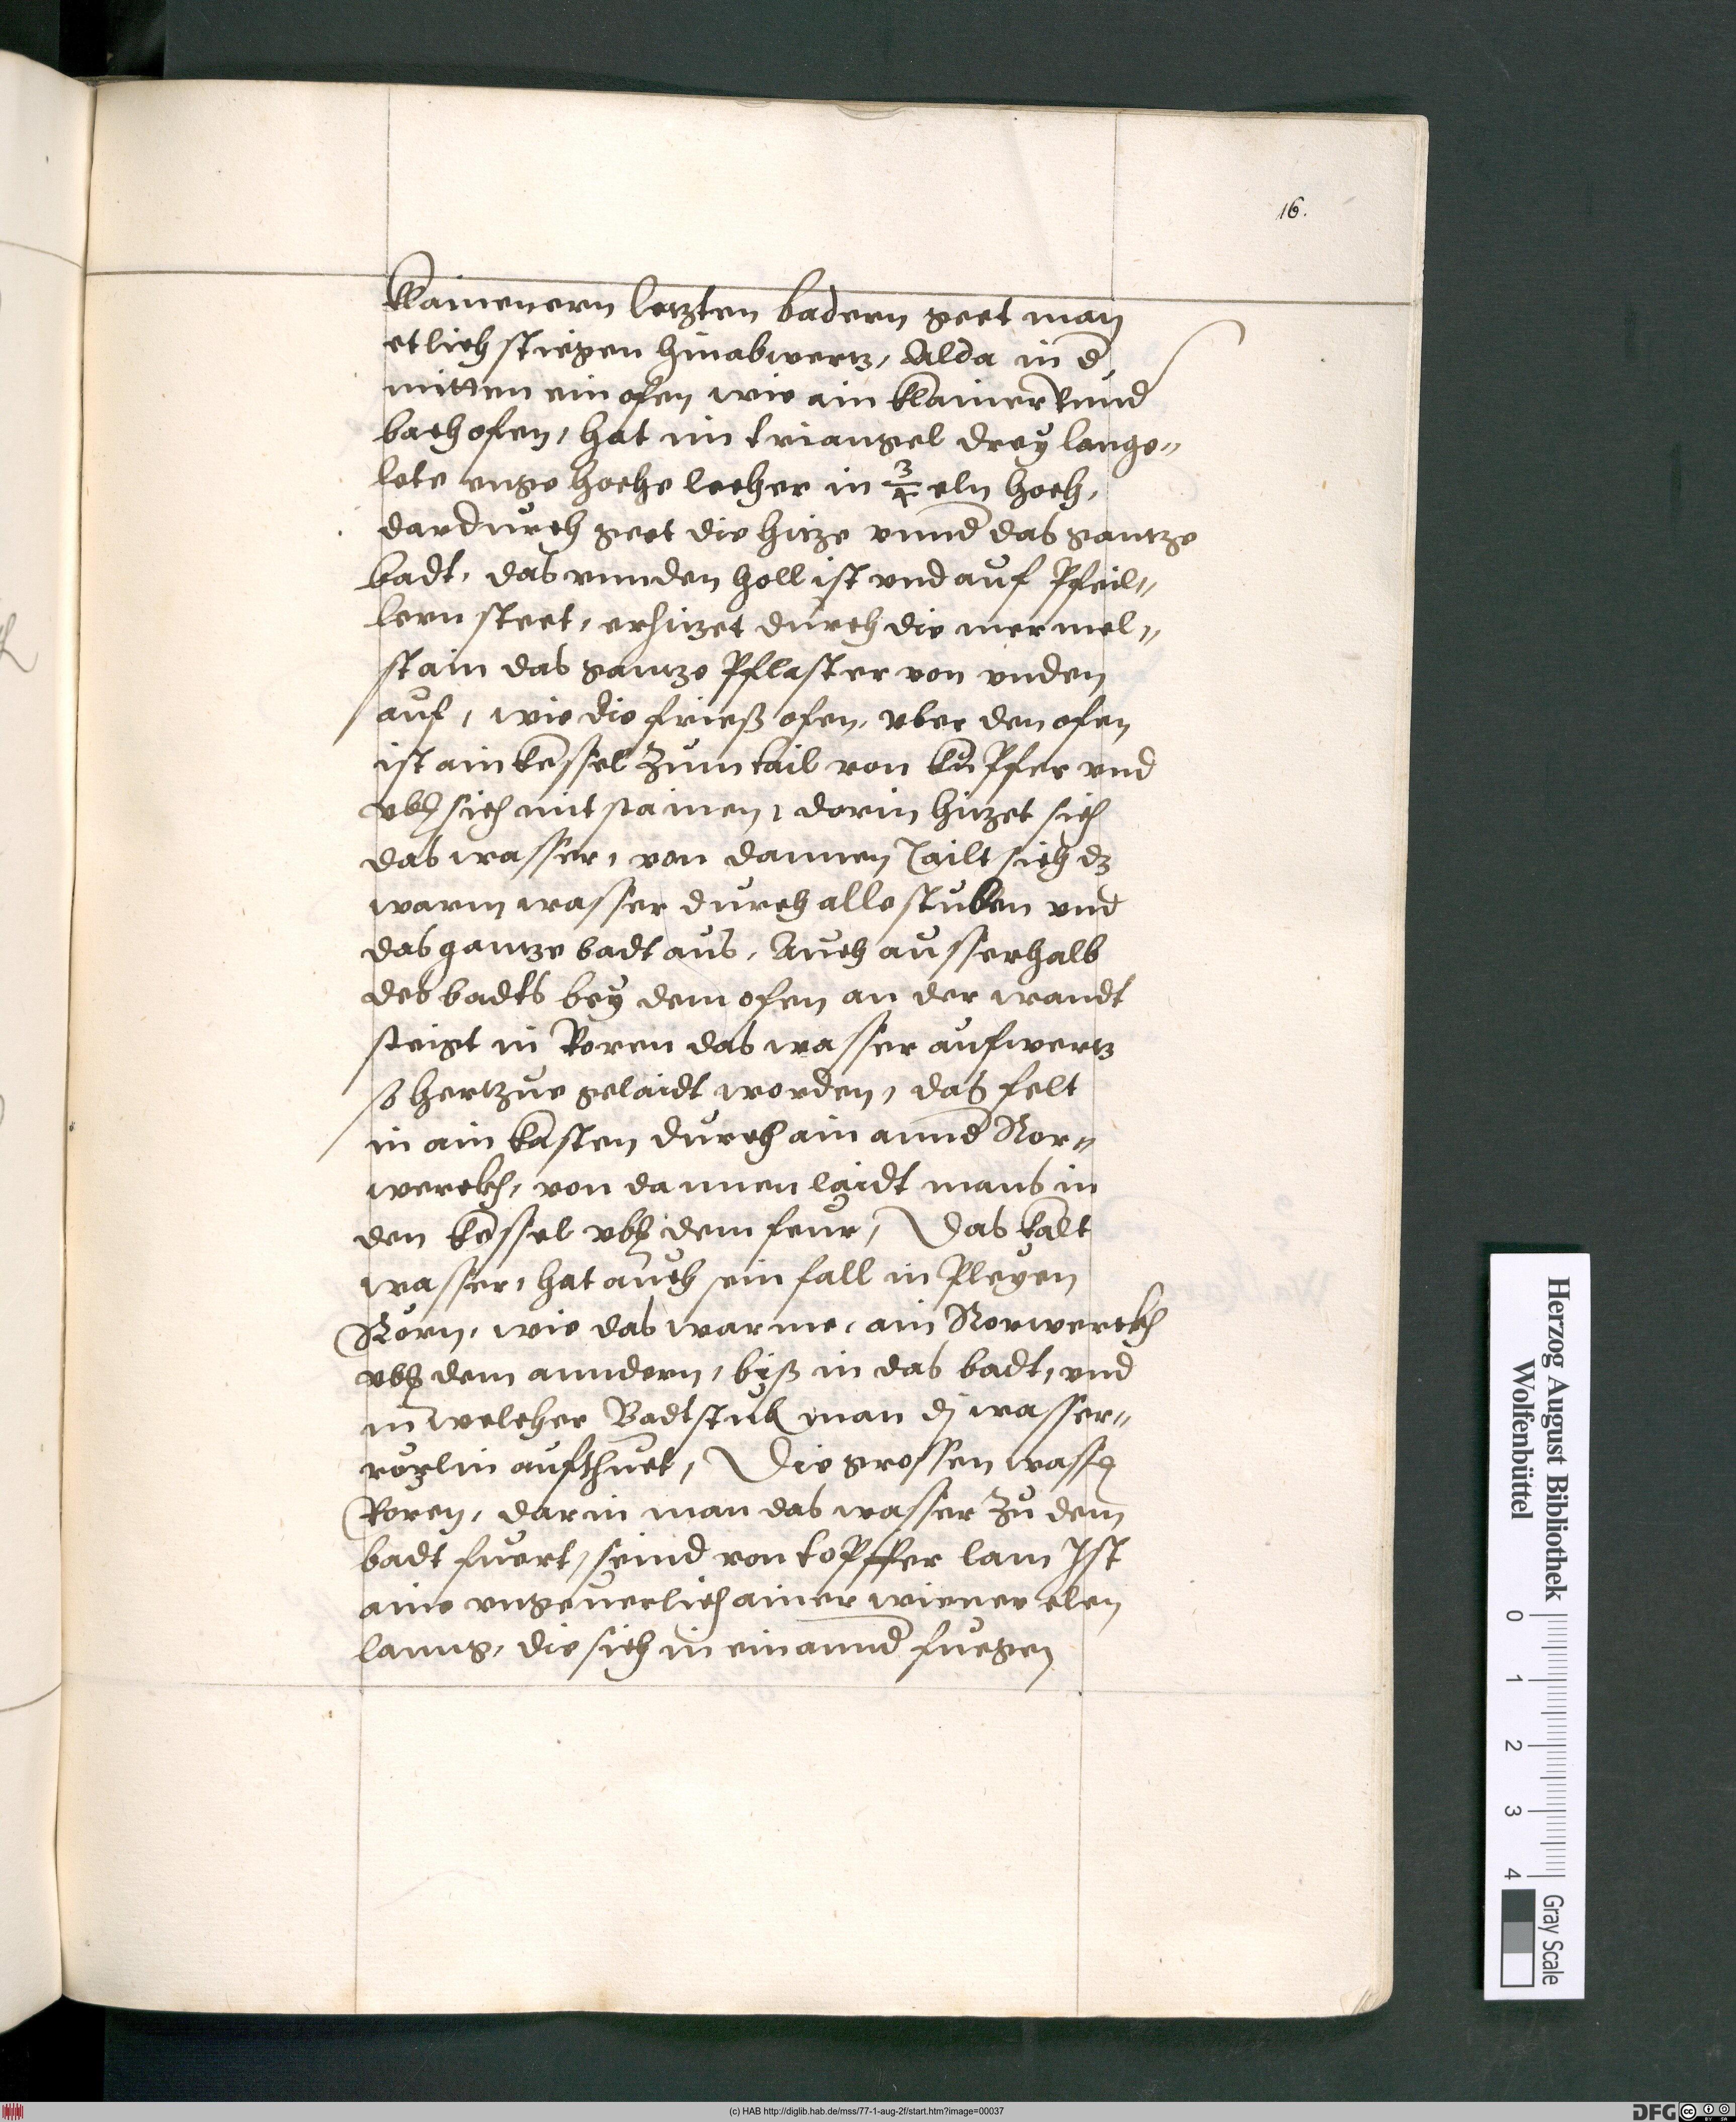 16.
klainenern letzten badern geet man
etlich stiegen hinabwertz, Alda in d
mitten ein ofen wie ain klainer Rund
bachofen, hat im triangel drey lange„
lete enge hoche locher in 3/4 eln hoch,
dardurch geet die hitze vnnd das gantze
badt, das vnnden holl ist vnd auf Pfeil„
lern steet, erhitzet durch die mermel„
stain das gantze Pflaster von vnden
auf, wie die frieß ofen, vber den ofen
ist ain kessel zum tail von kupfer vnd
vber sich mit stainen, dorin hitzet sich
das wasser, von dannen Tailt sich dz
warm wasser durch alle stuben vnd
das gantze badt aus, Auch ausserhalb
des badts bey dem ofen an der wandt
steigt in Roren das wasser aufwertz
so hertzue gelaidt worden, das felt
in ain kasten durch ain annd Ror„
werckh, von dannen laidt mans in
den kessel vber dem feur, Das kalt
wasser, hat auch sein fall in Pleyen
Rörn, wie das warme, ain Rorwerckh
vber dem anndern, biß in das badt, vnd
in welcher Badtstub man dz wasser„
rörlin aufthuet, Die grossen wasser
Roren, darin man das wasser zu dem
badt fuert, seind von topffer lam Ist
aine vngeuerlich ainer wiener elen
lanng, die sich in einannd fuegen
Herzog August Bibliothek
Wolfenbüttel
0 1 2 3 4
Gray Scale
(c) HAB http://diglib.hab.de/mss/77-1-aug-2f/start.htm?image=00037
DFG